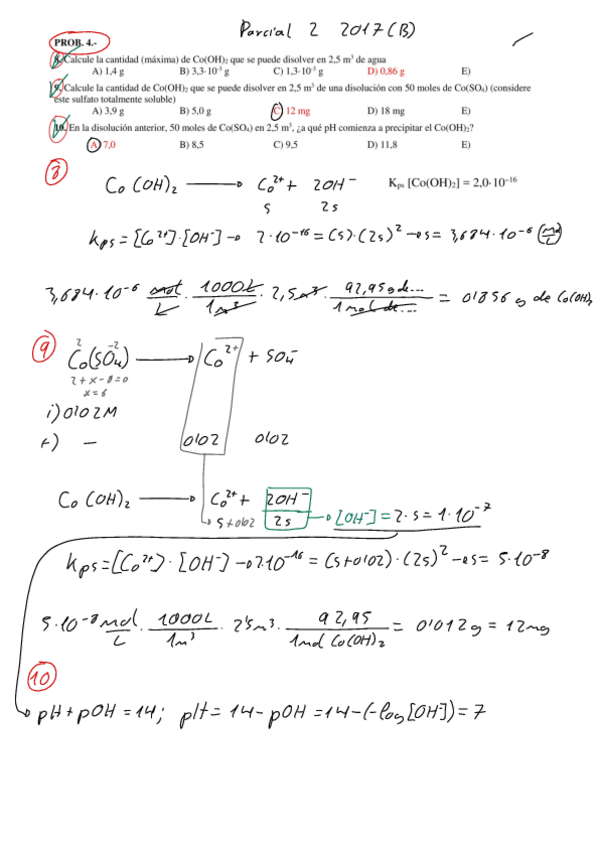 Parcial 2 2017(B)
PROB. 4.-
8. Calcule la cantidad (máxima) de Co(OH)₂ que se puede disolver en 2,5 m³ de agua
A) 1,4 g B) 3,3·10⁻³ g C) 1,3·10⁻³ g D) 0,86 g E)
9. Calcule la cantidad de Co(OH)₂ que se puede disolver en 2,5 m³ de una disolución con 50 moles de Co(SO₄) (considere
éste sulfato totalmente soluble)
A) 3,9 g B) 5,0 g C) 12 mg D) 18 mg E)
10. En la disolución anterior, 50 moles de Co(SO₄) en 2,5 m³, ¿a qué pH comienza a precipitar el Co(OH)₂?
A) 7,0 B) 8,5 C) 9,5 D) 11,8 E)
8
Co (OH)₂ → Co²⁺ + 2OH⁻ Kₚₛ [Co(OH)₂] = 2,0·10⁻¹⁶
s 2s
Kps = [Co²⁺]·[OH⁻] → 2·10⁻¹⁶ = (s)·(2s)² → s = 3,684·10⁻⁶ (mol/L)
3,684·10⁻⁶ mol/L · 1000L/1m³ · 2,5m³ · 92,95g de.../1mol de... = 0'856 g de Co(OH)₂
9
2 -2
Co(SO₄) → Co²⁺ + SO₄⁼
2+x-8=0
x=6
i) 0'02M
f) - 0'02 0'02
Co (OH)₂ → Co²⁺ + 2OH⁻
s+0'02 2s → [OH⁻] = 2·s = 1·10⁻⁷
Kps = [Co²⁺]·[OH⁻] → 2·10⁻¹⁶ = (s+0'02)·(2s)² → s = 5·10⁻⁸
5·10⁻⁸ mol/L · 1000L/1m³ · 2'5m³ · 92,95/1mol Co(OH)₂ = 0'012g = 12mg
10
pH + pOH = 14; pH = 14 - pOH = 14 - (-log[OH⁻]) = 7